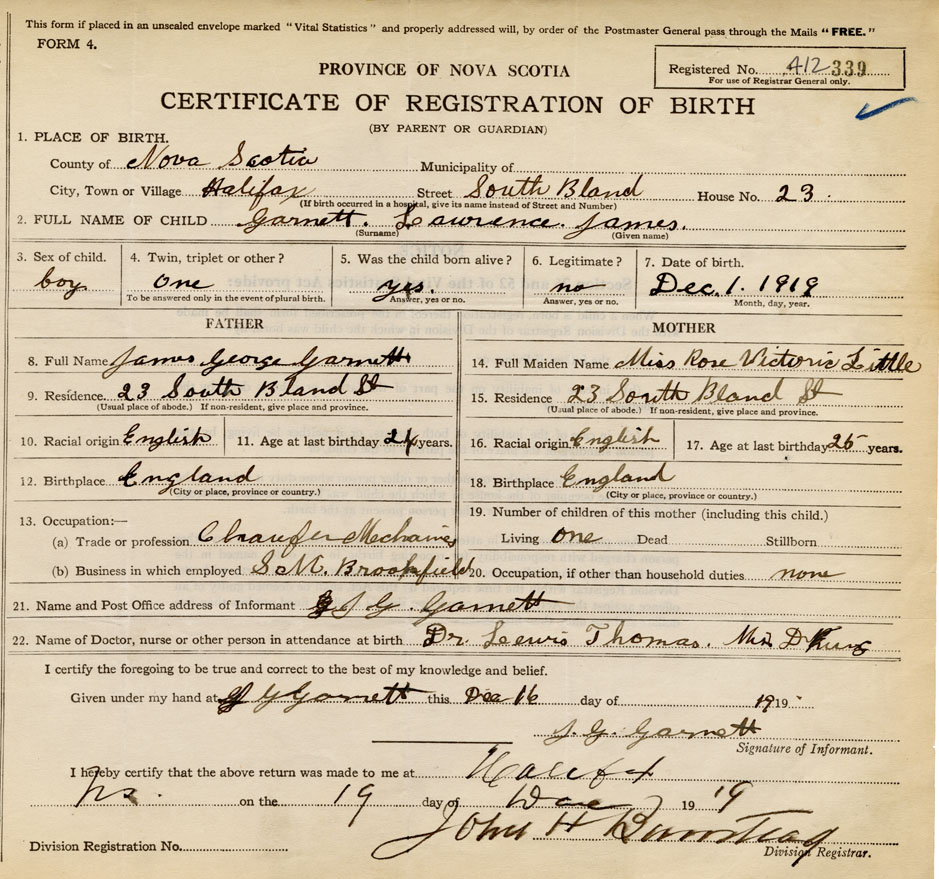 This form if placed in an unsealed envelope marked "Vital Statistics" and properly addressed will, by order of the Postmaster General pass through the Mails "FREE."
FORM 4.
PROVINCE OF NOVA SCOTIA
Registered No. 412 339
For use of Registrar General only.
CERTIFICATE OF REGISTRATION OF BIRTH
(BY PARENT OR GUARDIAN)
1. PLACE OF BIRTH.
County of Nova Scotia Municipality of
City, Town or Village Halifax Street South Bland House No. 23.
(If birth occurred in a hospital, give its name instead of Street and Number)
2. FULL NAME OF CHILD Garnett. Lawrence James.
(Surname) (Given name)
3. Sex of child. 4. Twin, triplet or other? 5. Was the child born alive? 6. Legitimate? 7. Date of birth.
boy one yes. no Dec. 1. 1919
To be answered only in the event of plural birth. Answer, yes or no. Answer, yes or no. Month, day, year.
FATHER MOTHER
8. Full Name James George Garnett 14. Full Maiden Name Miss Rose Victoria Little
9. Residence 23 South Bland St 15. Residence 23 South Bland St
(Usual place of abode.) If non-resident, give place and province. (Usual place of abode.) If non-resident, give place and province.
10. Racial origin English 11. Age at last birthday 24 years. 16. Racial origin English 17. Age at last birthday 25 years.
12. Birthplace England 18. Birthplace England
(City or place, province or country.) (City or place, province or country.)
13. Occupation:— 19. Number of children of this mother (including this child.)
(a) Trade or profession Chaufer Mechanic Living one Dead Stillborn
(b) Business in which employed S.M. Brookfield 20. Occupation, if other than household duties none
21. Name and Post Office address of Informant J G Garnett
22. Name of Doctor, nurse or other person in attendance at birth Dr. Lewis Thomas.
I certify the foregoing to be true and correct to the best of my knowledge and belief.
Given under my hand at J G Garnett this Dec 16 day of 1919
J. G. Garnett
Signature of Informant.
I hereby certify that the above return was made to me at Halifax
N.S. on the 19 day of Dec 19 19
John H Barnstead
Division Registration No. Division Registrar.